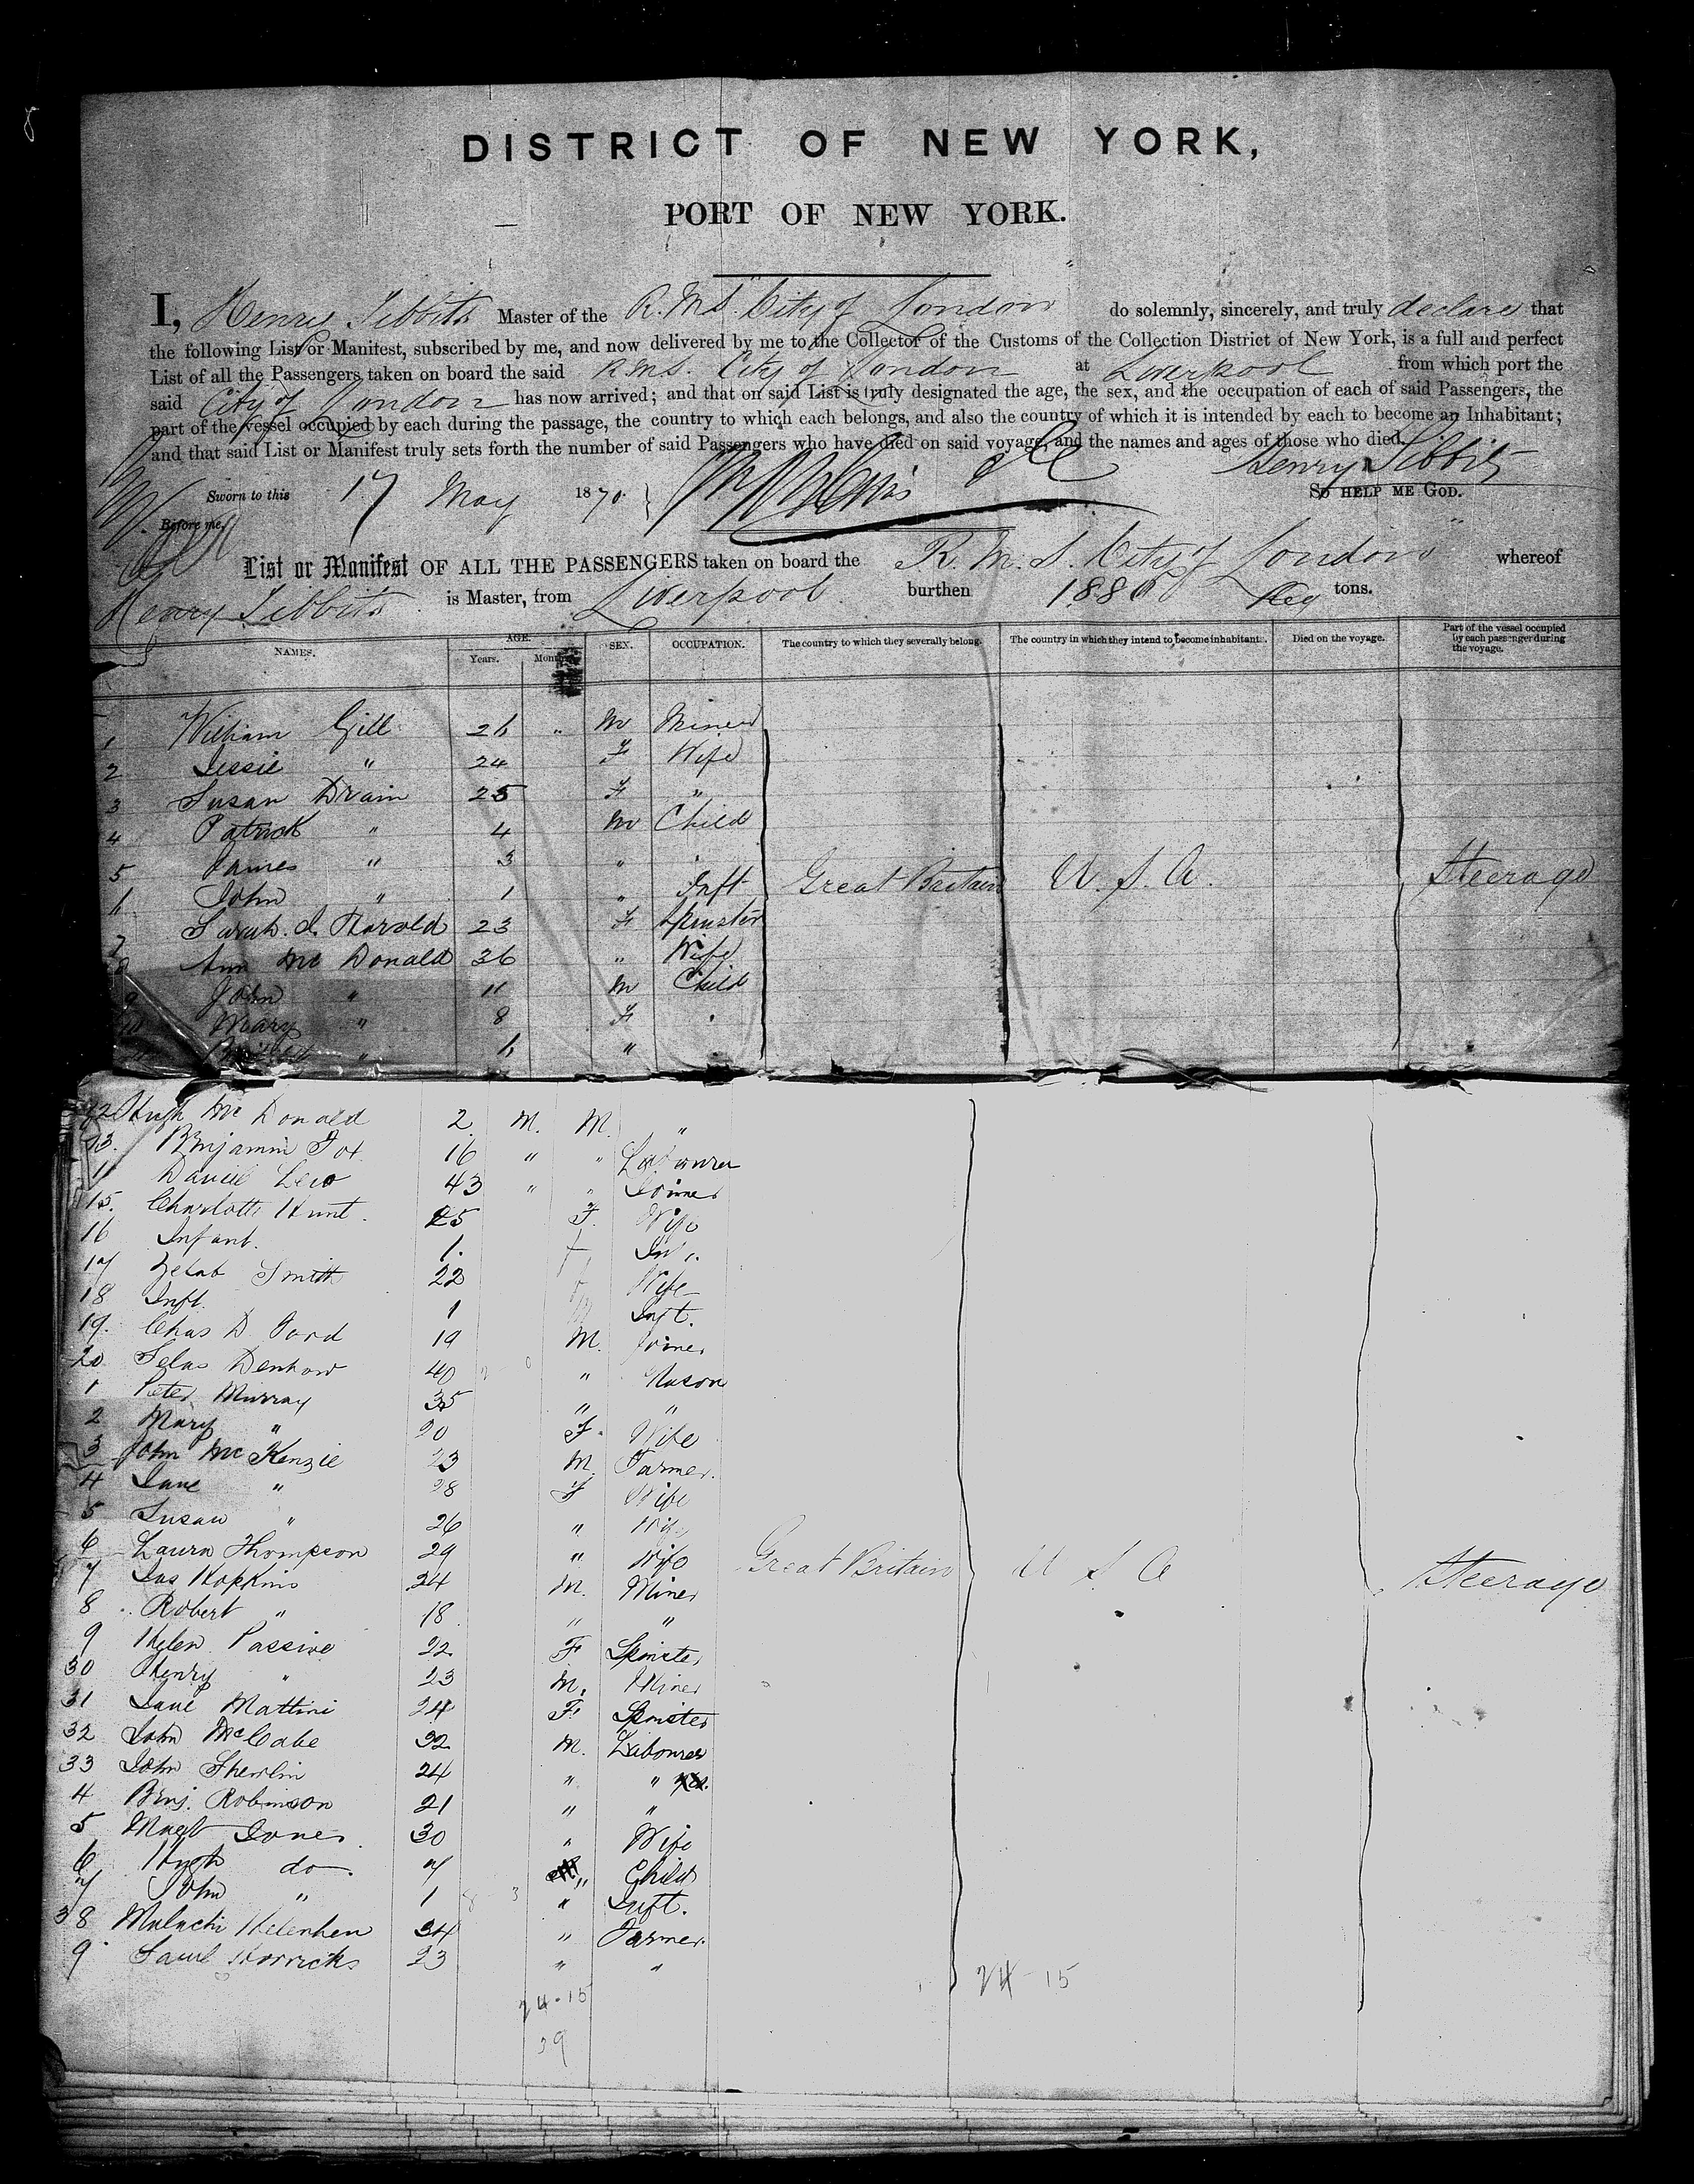 DISTRICT OF NEW YORK,
PORT OF NEW YORK.
I, Henry Tibbits Master of the R.M.S. City of London do solemnly, sincerely, and truly declare that
the following List or Manifest, subscribed by me, and now delivered by me to the Collector of the Customs of the Collection District of New York, is a full and perfect
List of all the Passengers taken on board the said R.M.S. City of London at Liverpool from which port the
said City of London has now arrived; and that on said List is truly designated the age, the sex, and the occupation of each of said Passengers, the
part of the vessel occupied by each during the passage, the country to which each belongs, and also the country of which it is intended by each to become an Inhabitant;
and that said List or Manifest truly sets forth the number of said Passengers who have died on said voyage, and the names and ages of those who died.
Henry Tibbits
Sworn to this 17 May 1870. SO HELP ME GOD.
Before me,
List or Manifest OF ALL THE PASSENGERS taken on board the R.M.S. City of London whereof
Henry Tibbits is Master, from Liverpool burthen 1880 Reg tons.
NAMES. AGE. Years. Months. SEX. OCCUPATION. The country to which they severally belong. The country in which they intend to become inhabitants. Died on the voyage. Part of the vessel occupied by each passenger during the voyage.
1 William Gill 26 " M Miner
2 Jessie " 24 F Wife
3 Susan Drain 25 F "
4 Patrick " 4 M Child
5 James " 3 " "
6 John " 1 " Inft Great Britain U.S.A. Steerage
7 Sarah. J. Harold 23 F Spinster
8 Ann Mc Donald 36 " Wife
9 John " 11 M Child
10 Mary " 8 F "
" 6 "
12 Hugh Mc Donald 2 M. M. "
13. Benjamin Fox 16 " " Labourer
14 Daniel Leio 43 " " Joiner
15. Charlotte Hunt. 25 F. Wife
16 Infant. 1. f Inf.
17 Smith 22 f Wife
18 Inft. 1 Inft.
19. Chas D Ford 19 M. Joiner
20 Selas Denhow 40 " Mason
1 Peter Murray 35 " "
2 Mary " 20 F. Wife
3 John Mc Kenzie 23 M. Farmer.
4 Jane " 28 F Wife
5 Susan " 26 " Wife
6 Laura Thompson 29 " Wife Great Britain U S A Steerage
7 Jas Hopkins 24 M. Miner
8 Robert " 18 " "
9 Helen Passive 22 F Spinster
30 Henry " 23 M. Miner
31 Jane Mattini 24 F. Spinster
32 John McCabe 32 M. Labourer
33 John Shewlin 24 " "
4 Benj. Robinson 21 " "
5 Magt Jones. 30 " Wife
6 Hugh do. 7 " Child
7 John " 1 " Inft.
38 Malachi 34 " Farmer.
9 Saml Horricks 23 " "
24-15 24-15
39